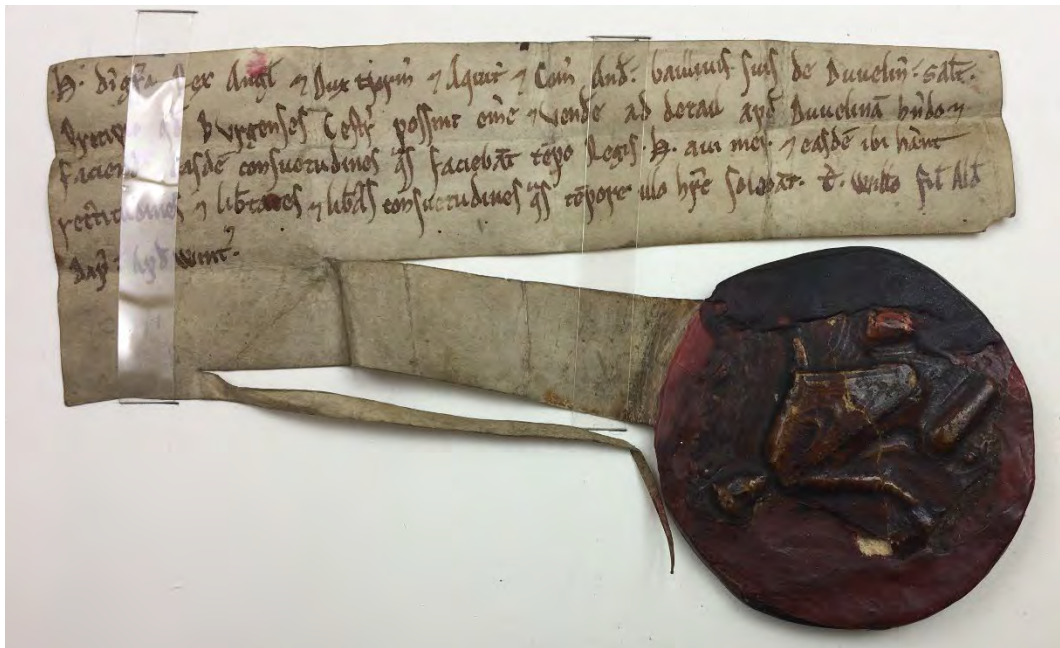 H. di gr̄a Rex Angl̄ ⁊ Dux ⁊ Aquit̄ ⁊ Com̄ And̄. baillivis suis de Duuelin̄. sal̄t.
Burgenses Cestr̄ possint em̄e ⁊ vend̄e ad detail ap̄d Duuelinā hn̄do ⁊
faciend easdē consuetudines q̄s faciebāt tēp̄o Regis. H. aui mei. ⁊ easdē ibi hānt
rectitudines ⁊ lib̄tates ⁊ lib̄as consuetudines q̄s tēpore illo h̄re solebāt. T̄. Will̄o fil̄ Ald̄
Dap̄. Wint̄.